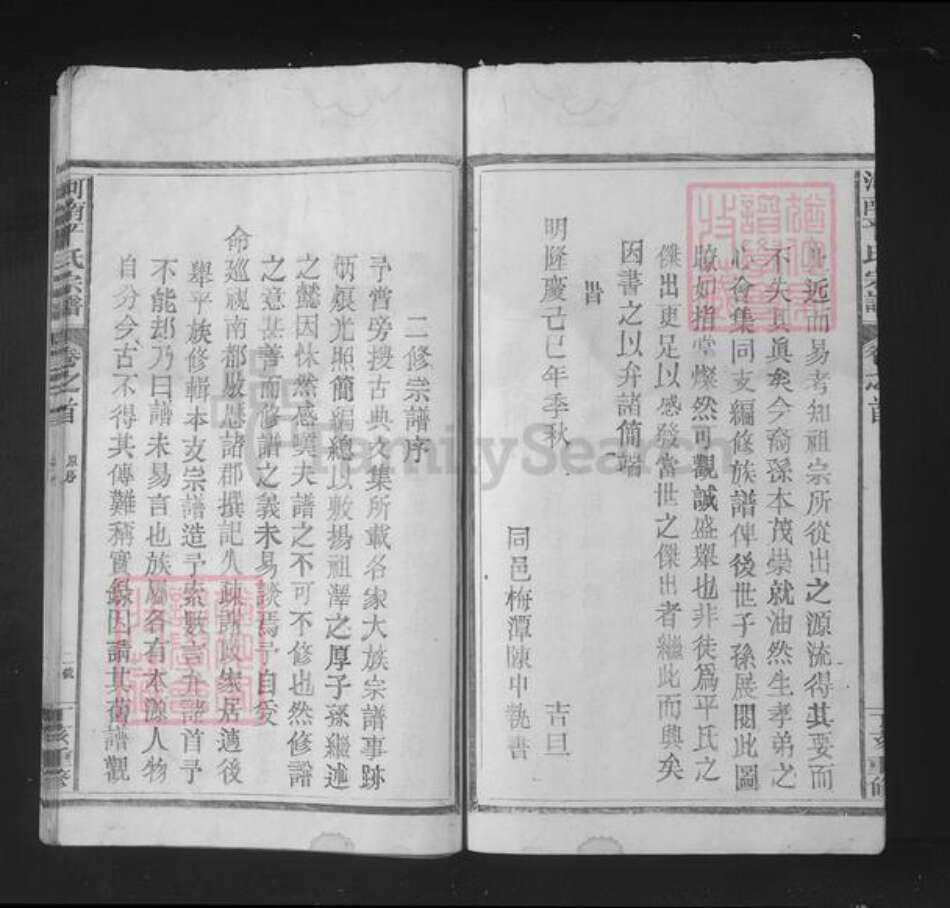 近而易者知祖宗所從出之源流得其要而
不失其眞矣今裔孫本茂崇就油然生孝弟之
心會集同支編修族譜俾後世子孫展閱此圖
瞭如指掌燦然可觀誠盛舉也非徒爲平氏之
傑出更足以感發當世之傑出者繼此而興矣
因書之以弁諸簡端
旹
明隆慶己巳年季秋 吉旦
同邑梅潭陳中執書
二修宗譜序
予嘗旁搜古典文集所載各家大族宗譜事跡
炳煥光照簡編總以敷揚祖澤之厚子孫繼述
之懿因怵然感嘆夫譜之不可不修也然修譜
之意甚善而修譜之義未易談焉予自受
命巡視南都敭歷諸郡撰記久疎謝政家居適後
舉平族修輯本支宗譜造予索數言弁諸首予
不能却乃曰譜未易言也族屬各有本源人物
自分今古不得其傳難稱實錄因請其舊譜觀
河南平氏宗譜
卷之首
原序
丁亥重修
FamilySearch